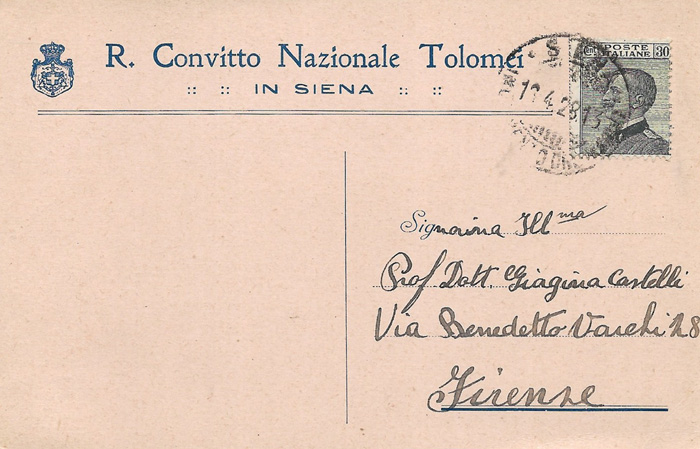 R. Convitto Nazionale Tolomei
:: :: IN SIENA :: ::
POSTE
ITALIANE
30
1928
Signorina Ill ma
Prof Dott. Giagina Castelli
Via Benedetto Varchi
Firenze